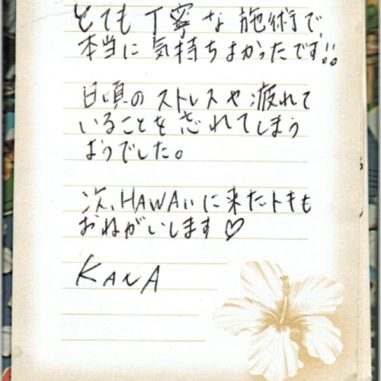 とても丁寧な施術で、
本当に気持ちよかったです!!
日頃のストレスや疲れて
いることをわすれてしまう
ようでした。
次、HAWAiiに来たトキも
おねがいします♡
KANA